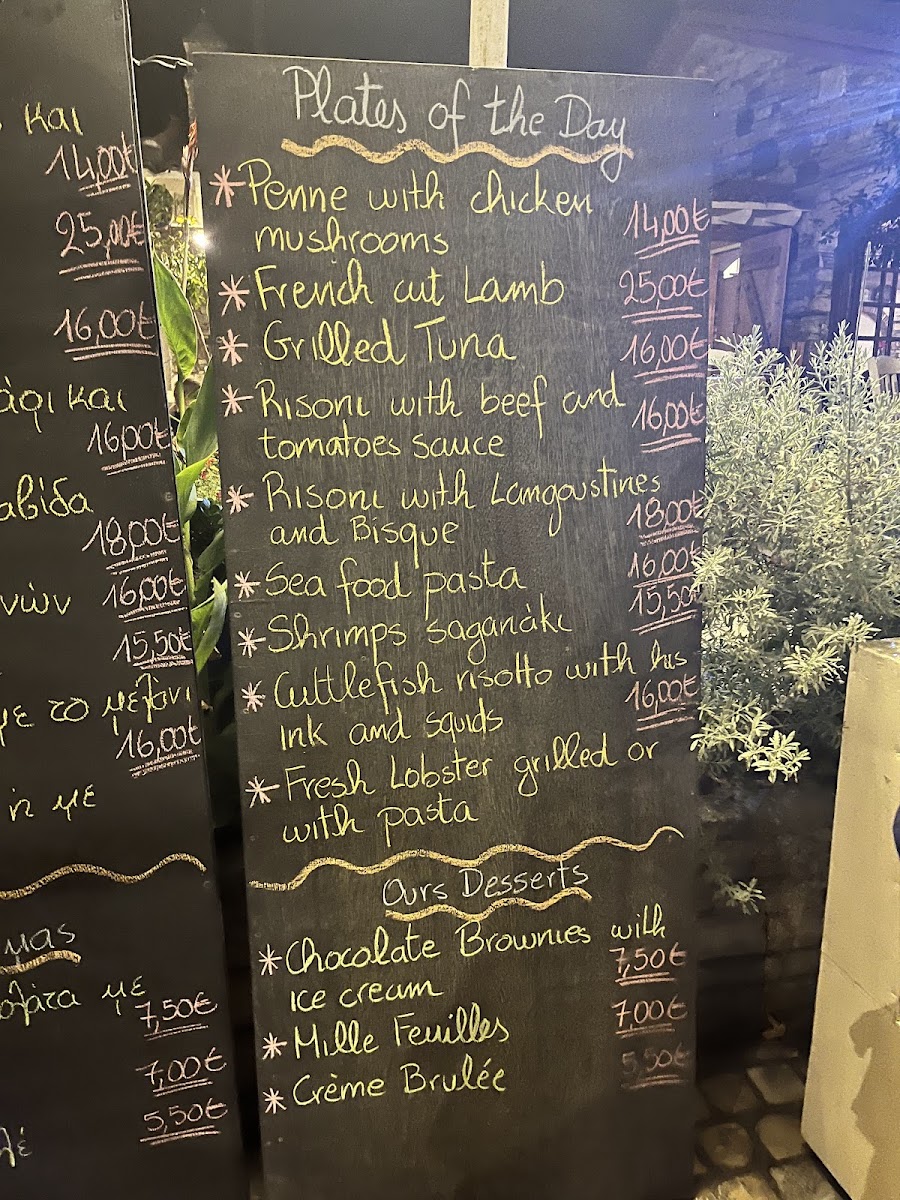 και
14,00€
25,00€
16,00€
άρι και
16,00€
αβίδα
18,00€
16,00€
νών
15,50€
με το μελάνι
16,00€
ή με
μας
ολάτα με
7,50€
7,00€
5,50€
λέ
Plates of the Day
*Penne with chicken
mushrooms 14,00€
*French cut Lamb 25,00€
*Grilled Tuna 16,00€
*Risoni with beef and
tomatoes sauce 16,00€
*Risoni with Langoustines
and Bisque 18,00€
*Sea food pasta 16,00€
*Shrimps saganáki 15,50€
*Cuttlefish risotto with his
ink and squids 16,00€
*Fresh Lobster grilled or
with pasta
Ours Desserts
*Chocolate Brownies with
ice cream 7,50€
*Mille Feuilles 7,00€
*Crème Brulée 5,50€